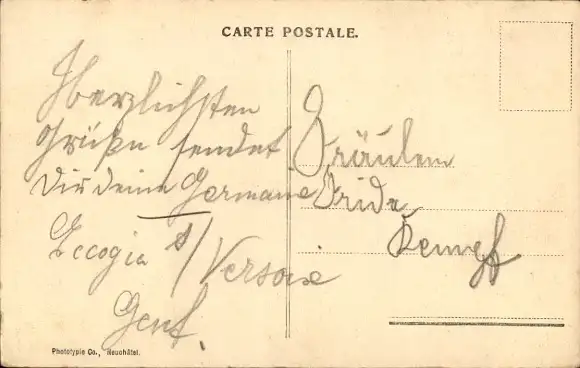 CARTE POSTALE.
Herzlichsten
Grüße sendet
Dir deine Germaine
s/ Versoix
Genf.
Fräulein
Frida
Phototypie Co., Neuchâtel.